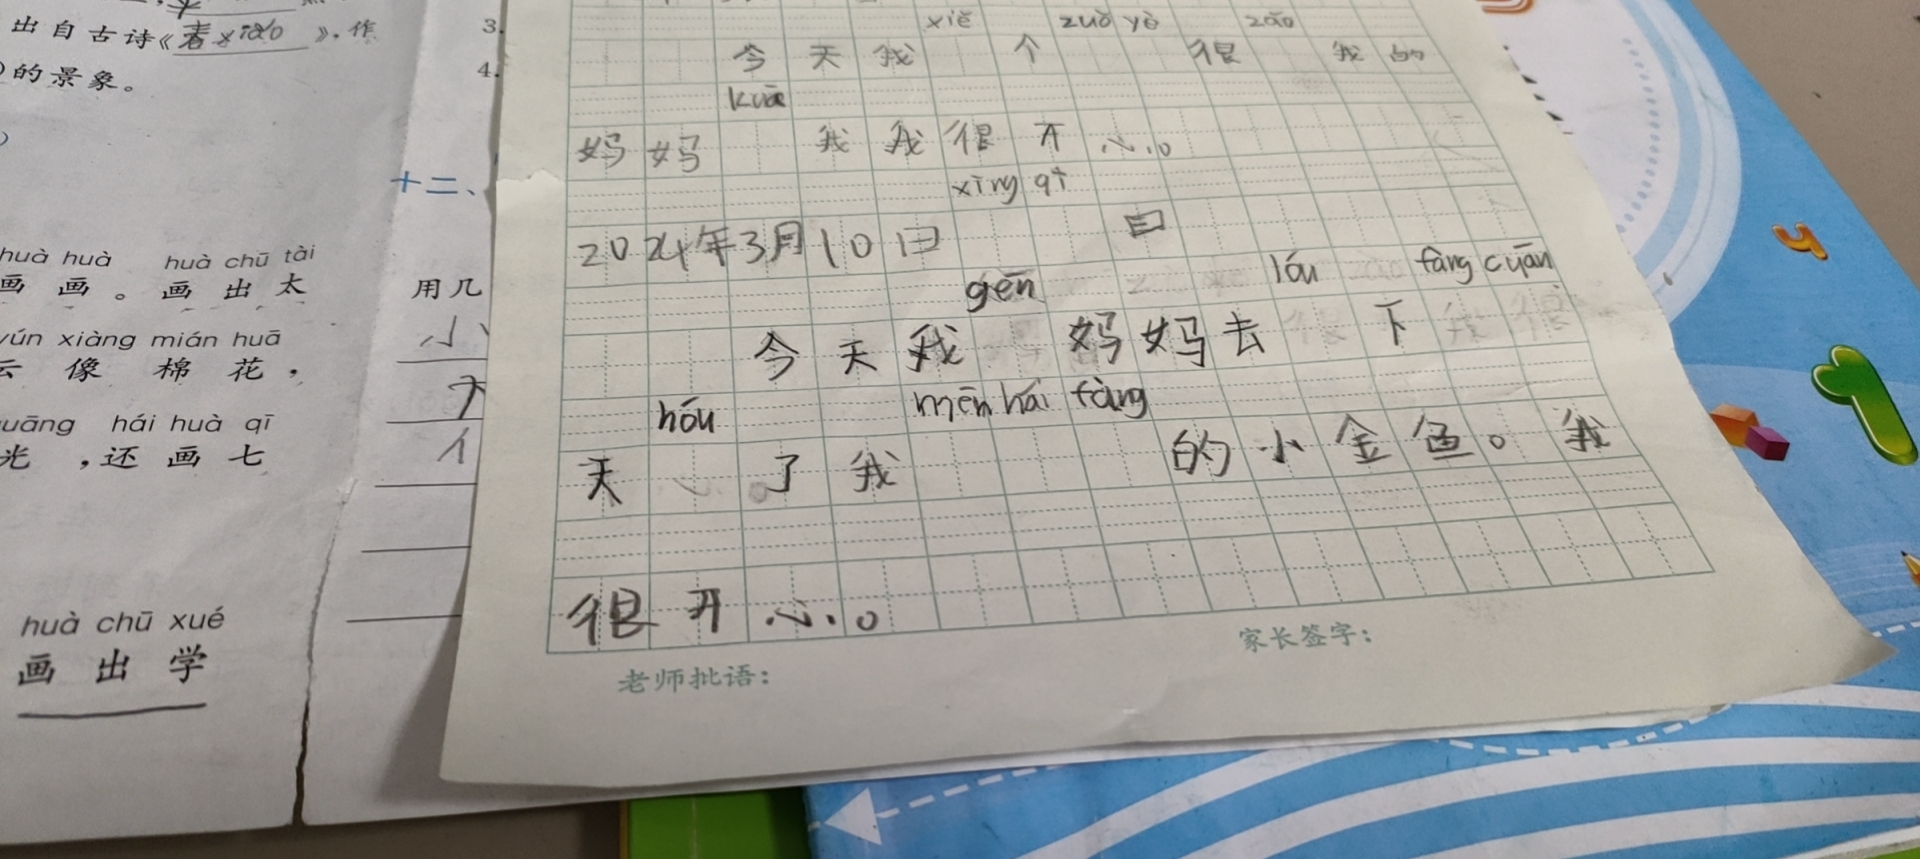 出自古诗《春xiǎo》.作
的景象。
huà huà huà chū tài
画画。画出太
yún xiàng mián huā
云像棉花，
guāng hái huà qī
光，还画七
huà chū xué
画出学
3.
4.
十二、
用几
小
个
xiě zuò yè zǎo
今天我 个 很 我的
kuā
妈妈 我我很开心。
xīng qī
2024年3月10日 日
gēn lóu fàng cuān
今天我 妈妈去 下
hóu mēn hái fàng
天 了我 的小金鱼。我
很开心。
老师批语：
家长签字：